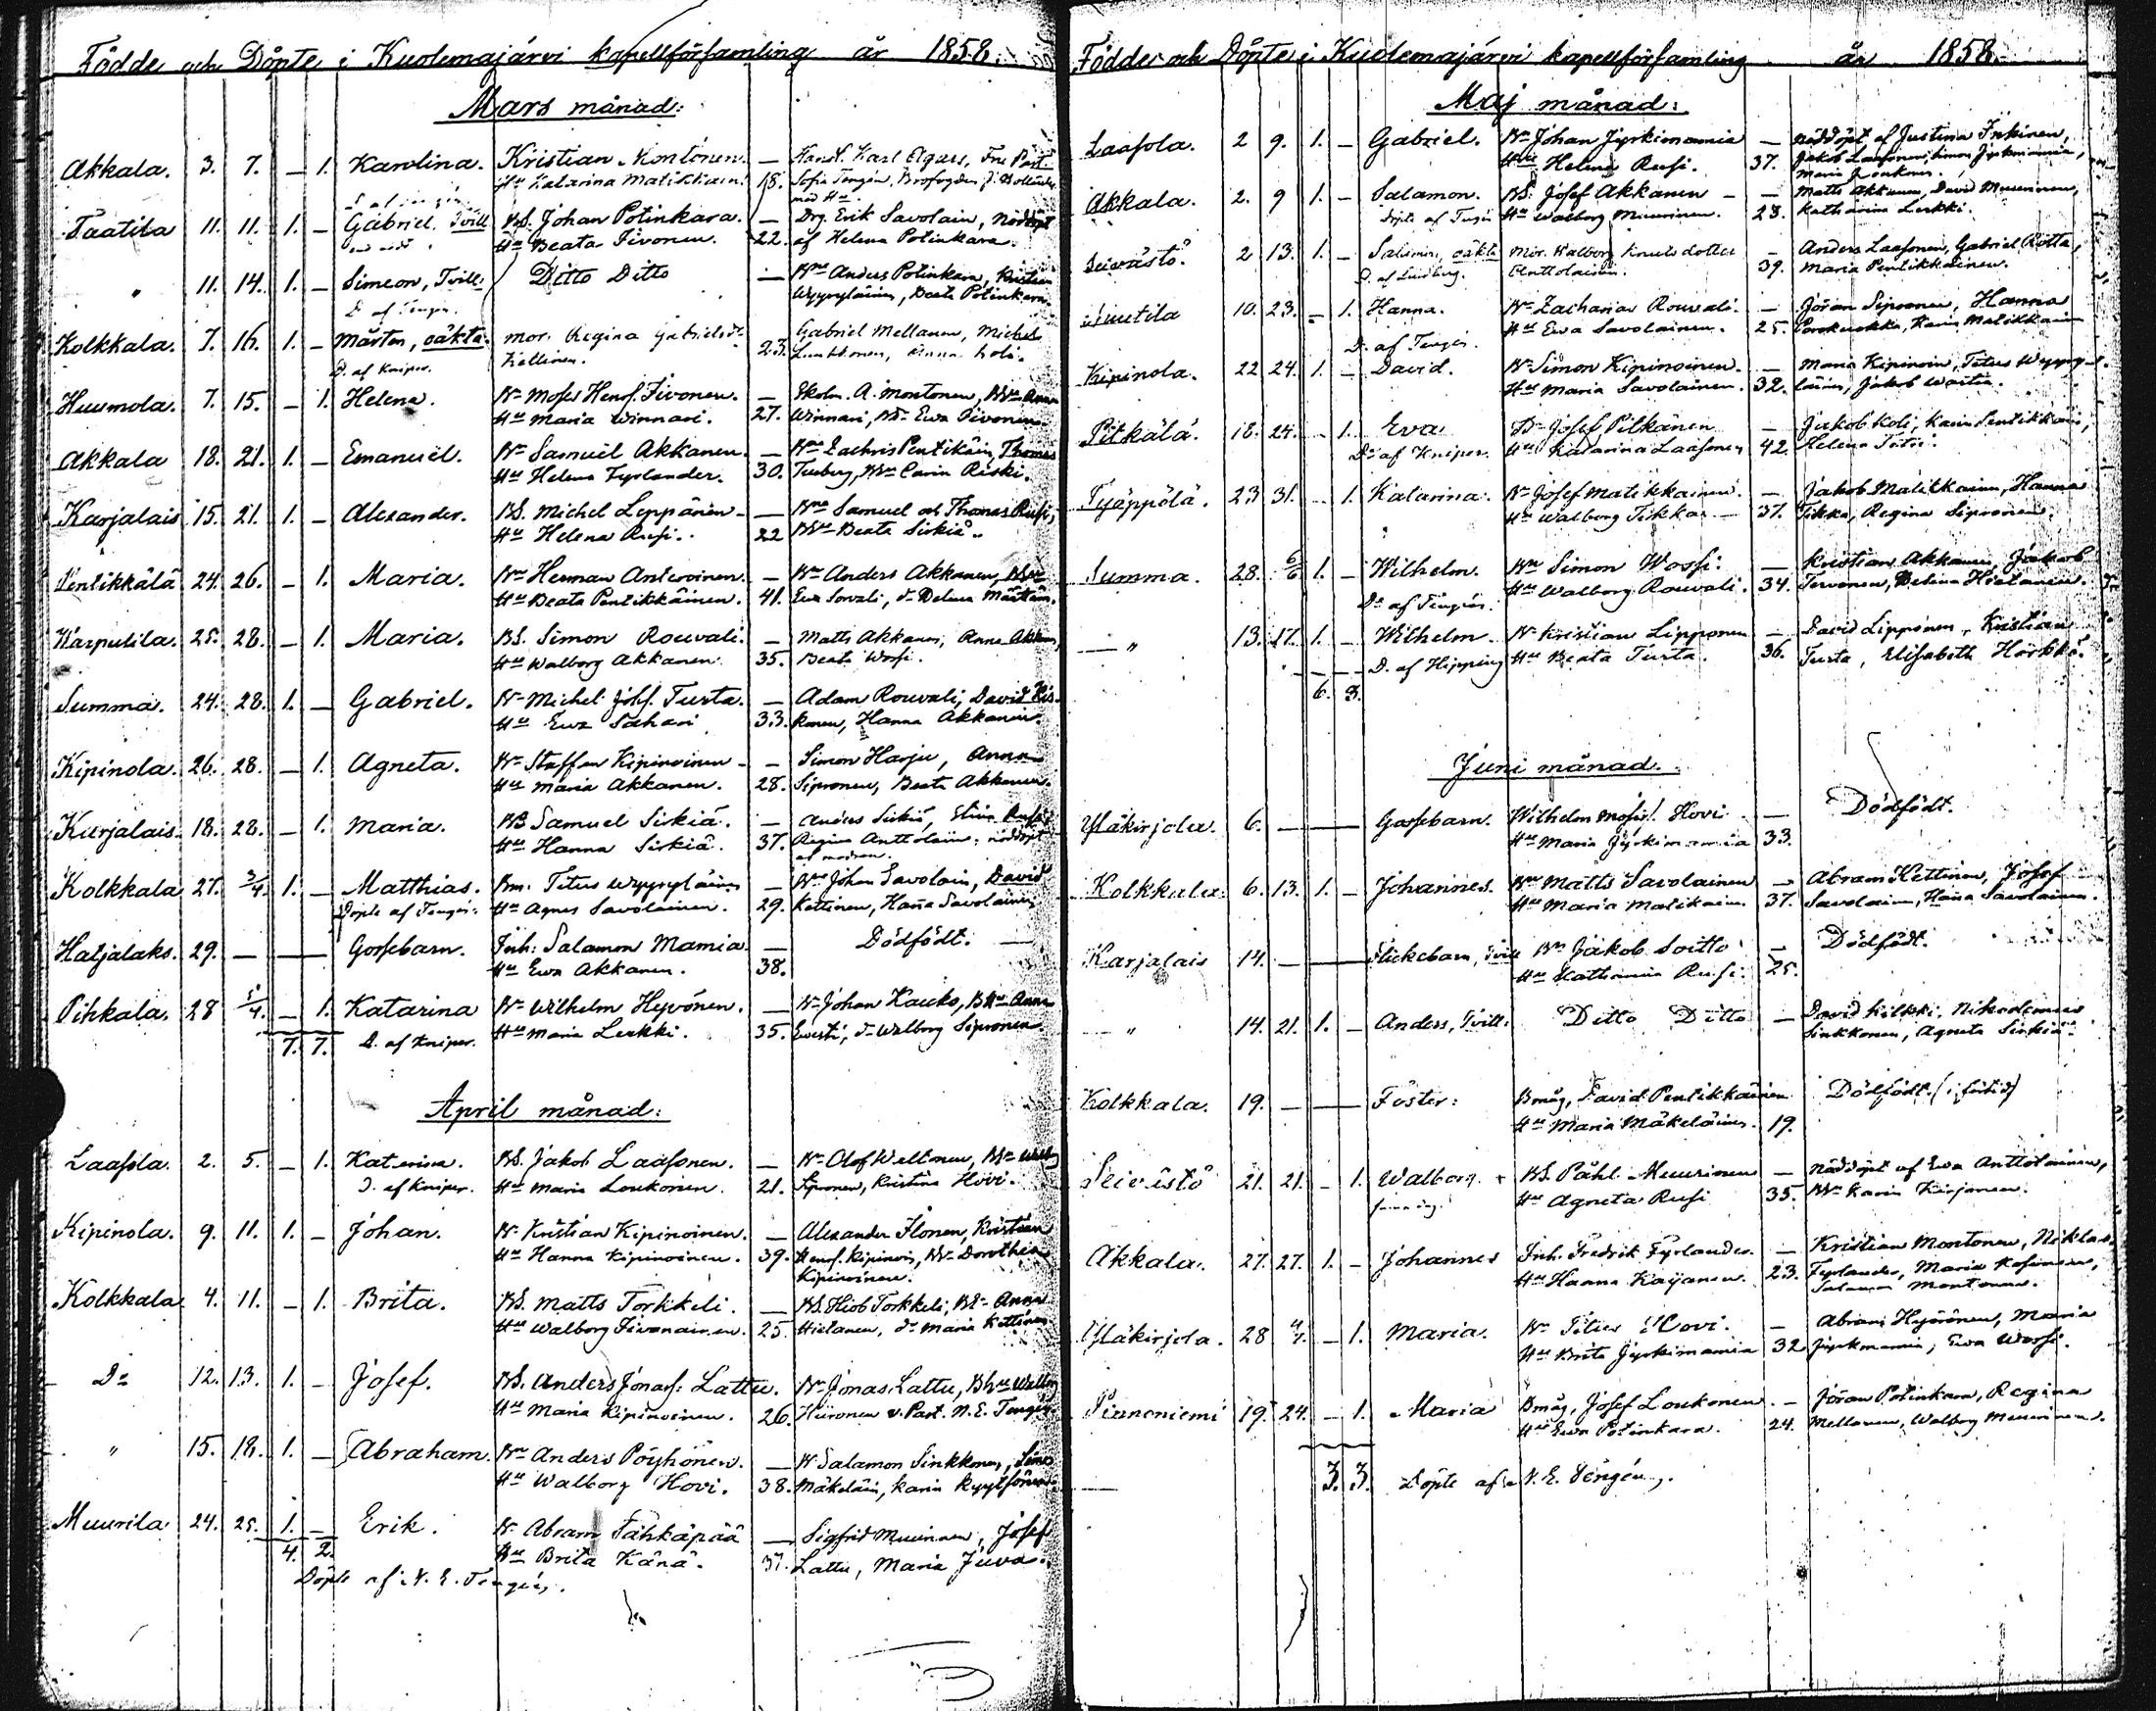 Födde och Döpte i Kuolemajärvi kapellförsamling år 1858.
Mars månad:
Akkala. 3. 7. — 1. Karolina. Kristian Montonen. — Handl. Karl Elgars, Fru Past.
Hu Katarina Matikkain. 18. Sofia Tengén, Brofogden J. Bollander
med Hu
Taatila 11. 11. 1. — Gabriel. Tvill. BS. Johan Potinkara. — Drg. Erik Savolain, Nöddöpt
Hu Beata Tivonen. 22. af Helena Potinkara.
" 11. 14. 1. — Simeon, Tvill: Ditto Ditto — Bne Anders Potinkara, Kristian
D. af Tengén. Wyyryläinen, Beata Potinkara.
Kolkkala. 7. 16. 1. — Mårten, oäkta. mor. Regina Gabrielsdr 23. Gabriel Mellanen, Michel
D. af Kniper. Kellinen. Lunkkonen, Anna Koli.
Huumola. 7. 15. — 1. Helena. Bn Moses Henr. Tivonen. — Skolm. A. Montonen, BHu Anna
Hu Maria Winnari. 27. Winnari, Bdr Ewa Tivonen.
Akkala 18. 21. 1. — Emanuel. Bn Samuel Akkanen. — Bne Zachris Pentikäin, Thomas
Hu Helena Fyrlander. 30. Teuberg, BHu Carin Riski.
Karjalais 15. 21. 1. — Alexander. BS. Michel Leppänen — — Bne Samuel och Thomas Rusi,
Hu Helena Rusi. 22 BHu Beata Sirkiä.
Pentikkälä 24. 26. — 1. Maria. Bn Herman Anteroinen. — Bn Anders Akkanen, BHu
Hu Beata Pentikkäinen. 41. Ewa Sorvali, dr Helena Mårten.
Karpulila. 25. 28. — 1. Maria. BS. Simon Rouvali. — Matts Akkanen, Anna Akkan,
Hu Walborg Akkanen. 35. Beata Worsi.
Summa. 24. 28. 1. — Gabriel. Bn Michel Johs. Turta. — Adam Rouvali, David Kis-
Hu Ewa Sahari 33. konen, Hanna Akkanen.
Kipinola. 26. 28. — 1. Agneta. Bn Staffan Kipinoinen — — Simon Harju, Anna
Hu Maria Akkanen. 28. Sipronen, Beata Akkanen.
Karjalais. 18. 28. — 1. Maria. BB Samuel Sirkiä. — Anders Sirkiä, Elina Rusi,
Hu Hanna Sirkiä. 37. Regina Anttolain; nöddöpt
af modren.
Kolkkala 27. 3/4. 1. — Matthias. Bn. Titus Wyyryläinen — Bne Johan Savolain, David
Döpte af Tengén. Hu Agnes Savolainen. 29. Kettinen, Hanna Savolainen
Hatjalaks. 29. — — Gossebarn. Inh: Salamon Mamia. — Dödfödt. —
Hu Ewa Akkanen. 38.
Pihkala. 28 5/4. — 1. Katarina Bn Wilhelm Hyvönen. — Bn Johan Kauko, BHu Anna
7. 7. D. af Kniper. Hu Maria Lerkki. 35. Eversti, dr Walborg Sipronen
April månad:
Laasola. 2. 5. — 1. Katarina. BS. Jakob Laasonen. — Bn Olof Weltonen, BHu Walb.
D. af Kniper. Hu Maria Loukonen. 21. Sipronen, Kristina Hovi.
Kipinola. 9. 11. 1. — Johan. Bn Kristian Kipinoinen. — Alexander Ilonen, Kristian
Hu Hanna Kipinoinen. 39. Henr. Kipinoin, BHu Dorothea
Kipinoinen.
Kolkkala 4. 11. — 1. Brita. BS. Matts Torkkeli. — BS. Hiob Torkkeli, BHu Anna
Hu Walborg Tivonainen. 25. Hietanen, dr Maria Kettinen
Do 12. 13. 1. — Josef. BS. Anders Jonas: Lattu. Bn Jonas Lattu, BHu Walborg
Hu Maria Kipinoinen. 26. Hüronen v. Past. N. E. Tengén
" 15. 18. 1. — Abraham. Bn Anders Pöyhönen. — Bn Salamon Sinkkonen, Simon
Hu Walborg Hovi. 38. Mäkeläin, Karin Kyytsönen.
Muurila. 24. 25. 1. — Erik. Bn Abram Tähkäpää — Sigfrid Muurinen, Josef
4. 2. Hu Brita Känä. 37. Lattu, Maria Juva.
Döpte af N. E. Tengén.
Födde och Döpte i Kuolemajärvi kapellförsamling år 1858.
Maj månad:
Laasola. 2 9. 1. — Gabriel. Bn Johan Jyrkimamia — Nöddöpt af Justina Inkinen,
Hu Helena Rusi. 37. Jakob Laasonen, Simon Jyrkimamia,
Maria Loukonen.
Akkala. 2. 9 1. — Salamon. BS. Josef Akkanen — — Matts Akkanen, David Muurinen,
Döpte af Tengén Hu Walborg Muurinen. 23. Katharina Lerkki.
Seivästö. 2 13. 1. — oäkta Mor. Walborg Knutsdotter — Anders Laasonen, Gabriel Rotta,
D. af Lindberg. Penttolainen. 39. Maria Pentikkäinen.
10. 23. — 1. Hanna. Bn Zacharias Rouvali. — Jöran Sipronen, Hanna
D. af Tengén. Hu Ewa Savolainen. 25. Karin Matikkain
Kipinola. 22 24. 1. — David. Bn Simon Kipinoinen. — Maria Kipinoin, Titus Wyyry-
Hu Maria Savolainen. 32. läinen, Jakob Waitti.
Pitkälä. 18. 24. — 1. Eva Bn Josef Pitkänen — Jakob Koli, Karin Pentikkäin,
Do af Kniper. Hu Katarina Laasonen 42. Helena Totti.
Tyäppölä. 23 31. — 1. Katarina. Bn Josef Matikkainen. — Jakob Matikkainen, Hanna
Hu Walborg Tikka — 37. Tikka, Regina Sipronen.
Summa. 28. 6/6 1. — Wilhelm. Bn Simon Worsi. — Kristian Akkanen, Jakob
Do af Tengén. Hu Walborg Rouvali. 34. Tervonen, Helena Hietanen.
— " 13. 17. 1. — Wilhelm. Bn Kristian Lipponen — David Lipponen, Kristian
D. af Hipping Hu Beata Turta. 36. Turta, Elisabeth Härkkö.
6. 3.
Juni månad.
Yläkirjola. 6. — — Gossebarn. Wilhelm Moses! Hovi — Dödfödt.
Hu Maria Jyrkimamia 33.
Kolkkala. 6. 13. 1. — Johannes. Bn Matts Savolainen — Abram Kettinen, Josef
Hu Maria Matikain. 37. Savolain, Hanna Savolainen.
Karjalais 14. — — Flickebarn, Tvill Bn Jakob Soitto — Dödfödt.
Hu Katharina Rusi. 25.
— " 14. 21. 1. — Anders, Tvill: Ditto Ditto — David Kiltski, Nikodemus
Sinkkonen, Agneta Sirkiä.
Kolkkala. 19. — — Foster: Bmåg, David Pentikkäinen Dödfödt. (i förtid)
Hu Maria Mäkeläinen. 19.
Seivästö 21. 21. — 1. Walborg. + BS. Påhl Muurinen — Nöddöpt af Ewa Anttolainen,
Hu Agneta Rusi 35. BHu Karin Kirjonen.
Akkala. 27. 27. 1. — Johannes Inh. Fredrik Fyrlander. — Kristian Montonen, Niklas
Hu Hanna Kaijanen. 23. Fyrlander, Maria Kosonen,
Salamon Montonen.
Yläkirjola. 28 4/7. — 1. Maria. Bn Titus Hovi. — Abram Hyvönen, Maria
Hu Brita Jyrkimamia 32 Jyrkimamia, Ewa Worsi.
Pinnoniemi 19. 24. — 1. Maria Bmåg, Josef Loukonen. — Jöran Potinkara, Regina
Hu Ewa Potinkara. 24. Mellanen, Walborg Muurinen.
3. 3. Döpte af N. E. Tengén.